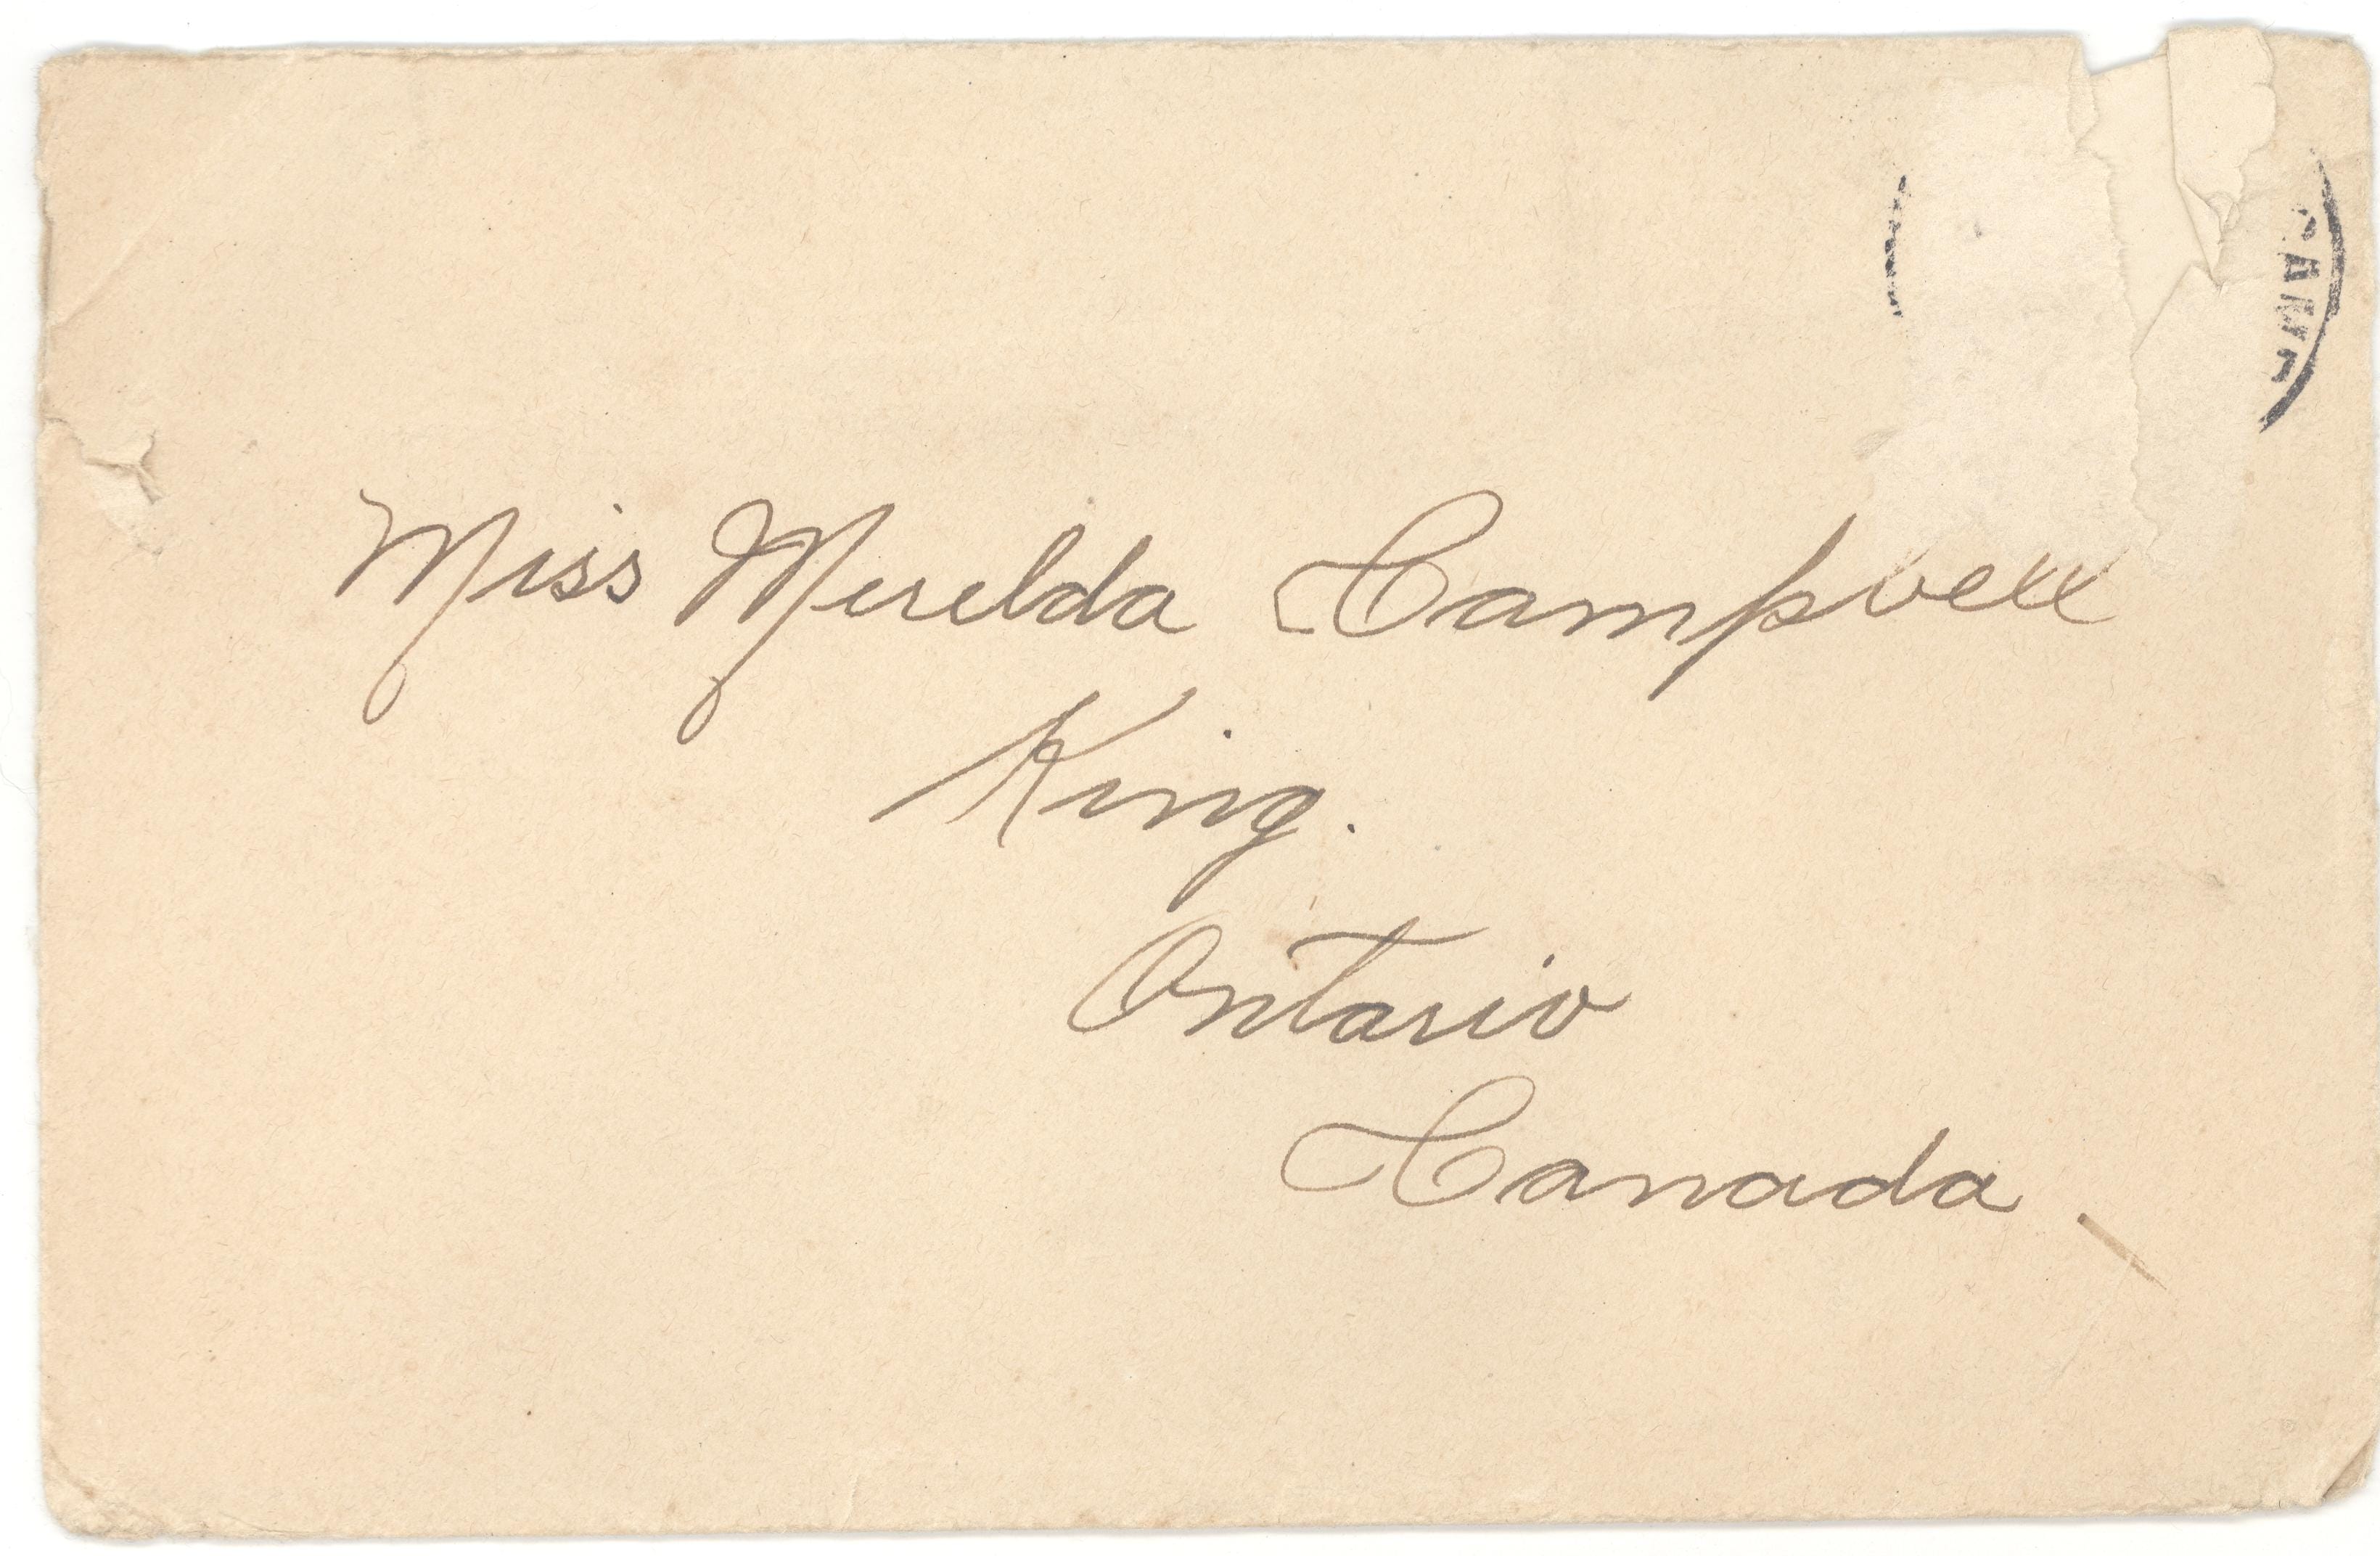 Miss Merelda Campbell
King.
Ontario
Canada